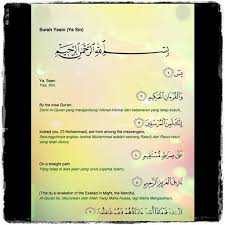 Surah Yasin (Ya Sin)
بِسْمِ اللَّهِ الرَّحْمَٰنِ الرَّحِيمِ
يس ﴿١﴾
Ya, Seen
Yaa, Siin.
وَالْقُرْآنِ الْحَكِيمِ ﴿٢﴾
By the wise Qur'an.
Demi Al-Quran yang mengandungi hikmat-hikmat dan kebenaran yang tetap kukuh,
إِنَّكَ لَمِنَ الْمُرْسَلِينَ ﴿٣﴾
Indeed you, [O Muhammad], are from among the messengers,
Sesungguhnya engkau (wahai Muhammad adalah seorang Rasul) dari Rasul-rasul
yang telah diutus,
عَلَىٰ صِرَاطٍ مُسْتَقِيمٍ ﴿٤﴾
On a straight path.
Yang tetap di atas jalan yang lurus (ugama Islam).
تَنْزِيلَ الْعَزِيزِ الرَّحِيمِ ﴿٥﴾
[This is] a revelation of the Exalted in Might, the Merciful,
Al-Quran itu, diturunkan oleh Allah Yang Maha Kuasa, lagi Maha Mengasihani,